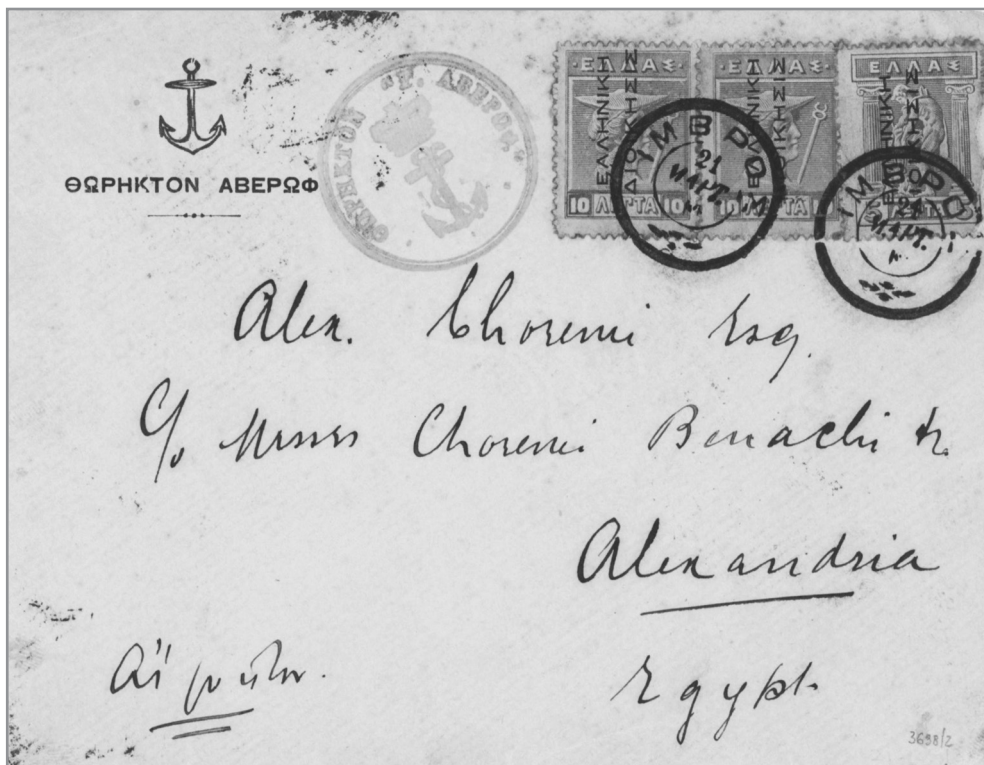 ΘΩΡΗΚΤΟΝ ΑΒΕΡΩΦ
ΘΩΡΗΚΤΟΝ "Γ. ΑΒΕΡΩΦ"
·ΕΛΛΑΣ·
ΕΛΛΗΝΙΚΗ
ΔΙΟΙΚΗΣΙΣ
10 ΛΕΠΤΑ 10
·ΕΛΛΑΣ·
ΕΛΛΗΝΙΚΗ
ΔΙΟΙΚΗΣΙΣ
10 ΛΕΠΤΑ
ΕΛΛΑΣ
ΕΛΛΗΝΙΚΗ
ΔΙΟΙΚΗΣΙΣ
ΛΕΠΤΑ
ΙΜΒΡΟΣ
21
ΜΑΡΤ.
ΙΜΒΡΟΣ
21
ΜΑΡΤ.
Alex. Choremi Esq.
C/o Messrs Choremi Benachi &
Alexandria
Egypt.
3698/2